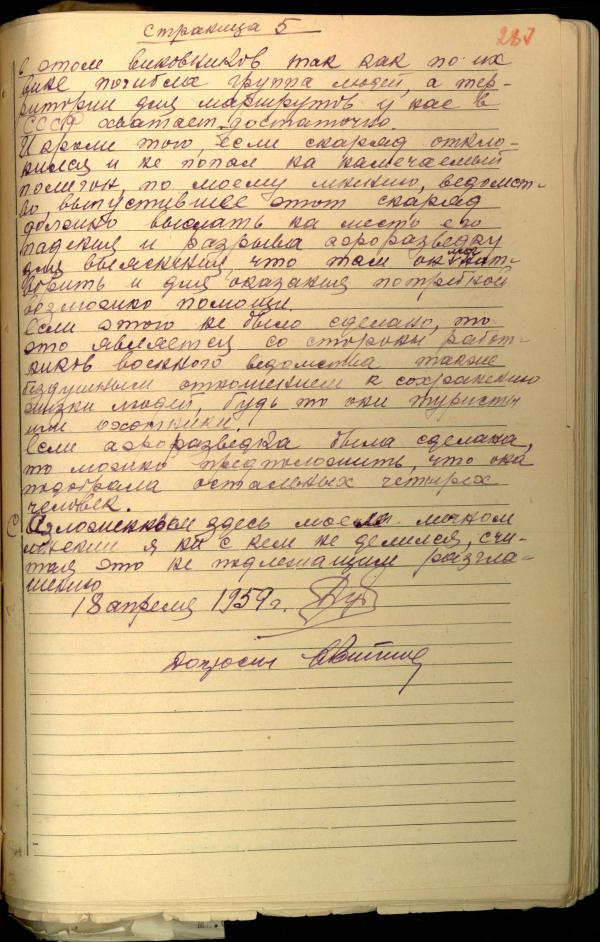 страница 5
287
в этом виновников так как по их
вине погибла группа людей, а тер-
ритории для маршрутов у нас в
СССР хватает достаточно.
И кроме того, если снаряд откло-
нился и не попал на намечаемый
полигон, по моему мнению, ведомст-
во, выпустившее этот снаряд
должно выслать на место его
падения и разрыва аэроразведку
для выяснения, что там он мог нат-
ворить и для оказания потребной
возможно помощи.
Если этого не было сделано, то
это является со стороны работ-
ников военного ведомства также
бездушным отношением к сохранению
жизни людей, будь то они туристы
или охотники.
Если аэроразведка была сделана,
то можно предположить, что она
подобрала остальных четырех
человек.
С изложенным здесь моем личном
мнении я ни с кем не делился, счи-
тая это не подлежащим разгла-
шению
18 апреля 1959 г.
Допросил